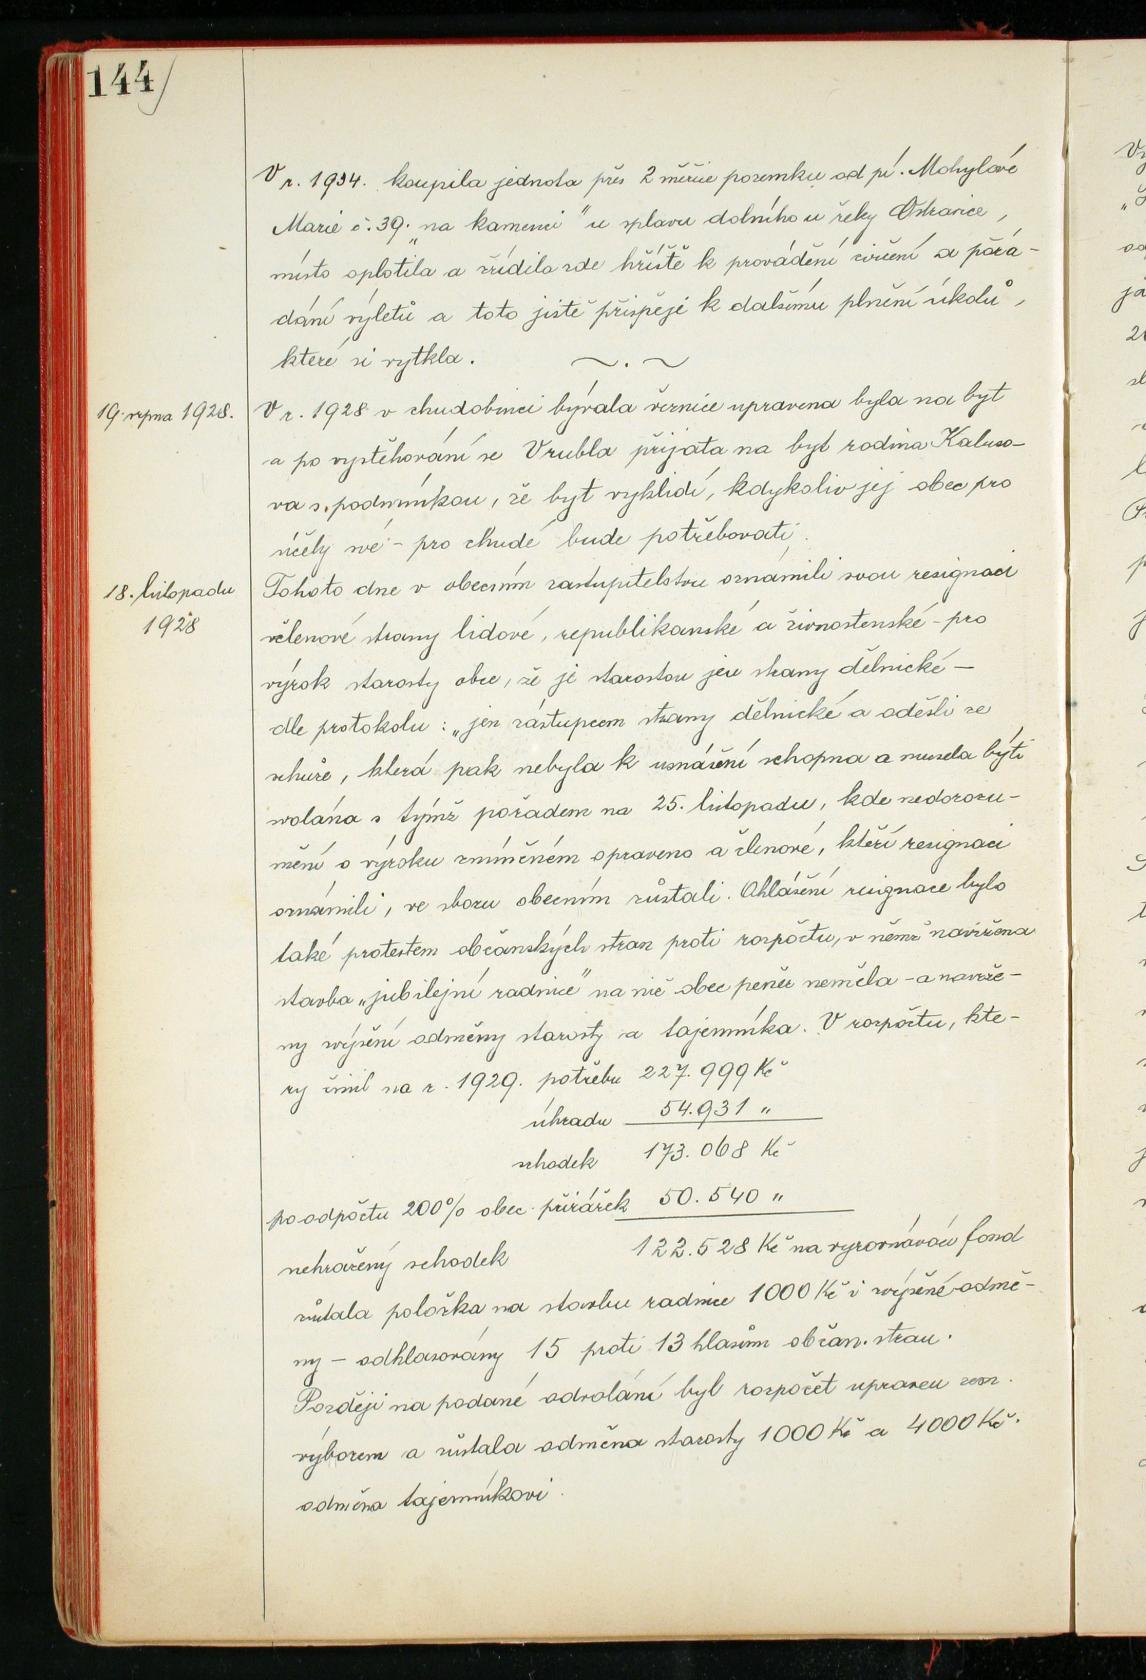 144
V r. 1934. koupila jednota přes 2 měřice pozemku od pí. Mohylové
Marie č. 39. „na kamenci" u splavu dolního u řeky Ostravice,
místo oplotila a zřídila zde hříště k provádění cvičení a pořá-
dání výletů a toto jistě přispěje k dalšímu plnění úkolů,
které si vytkla.
19. srpna 1928.
V r. 1928 v chudobinci bývala věznice upravena byla na byt
a po vystěhování se Vrubla přijata na byt rodina Kaluso-
va s podmínkou, že byt vyklidí, kdykoliv jej obec pro
účely své - pro chudé bude potřebovati.
18. listopadu
1928
Tohoto dne v obecním zastupitelstvu oznámili svou resignaci
členové strany lidové, republikanské a živnostenské - pro
výrok starosty obce, že je starostou jen strany dělnické —
dle protokolu : „jen zástupcem strany dělnické a odešli ze
schůze, která pak nebyla k usnášení schopna a musela býti
svolána s týmž pořadem na 25. listopadu, kde nedorozu-
mění o výroku zmíněném opraveno a členové, kteří resignaci
oznámili, ve sboru obecním zůstali. Ohlášení resignace bylo
také protestem občanských stran proti rozpočtu, v němž navržena
stavba „jubilejní radnice" na niž obec peněz neměla - a navrže-
ny zvýšení odměny starosty a tajemníka. V rozpočtu, kte-
rý činil na r. 1929. potřebu 227.999 Kč
úhradu 54.931 „
schodek 173.068 Kč
po odpočtu 200% obec. přirážek 50.540 „
nehražený schodek 122.528 Kč na vyrovnávací fond
zůstala položka na stavbu radnice 1000 Kč i zvýšené odmě-
ny - odhlasovány 15 proti 13 hlasům občan. stran.
Později na podané odvolání byl rozpočet upraven zem.
výborem a zůstala odměna starosty 1000 Kč a 4000 Kč.
odměna tajemníkovi.